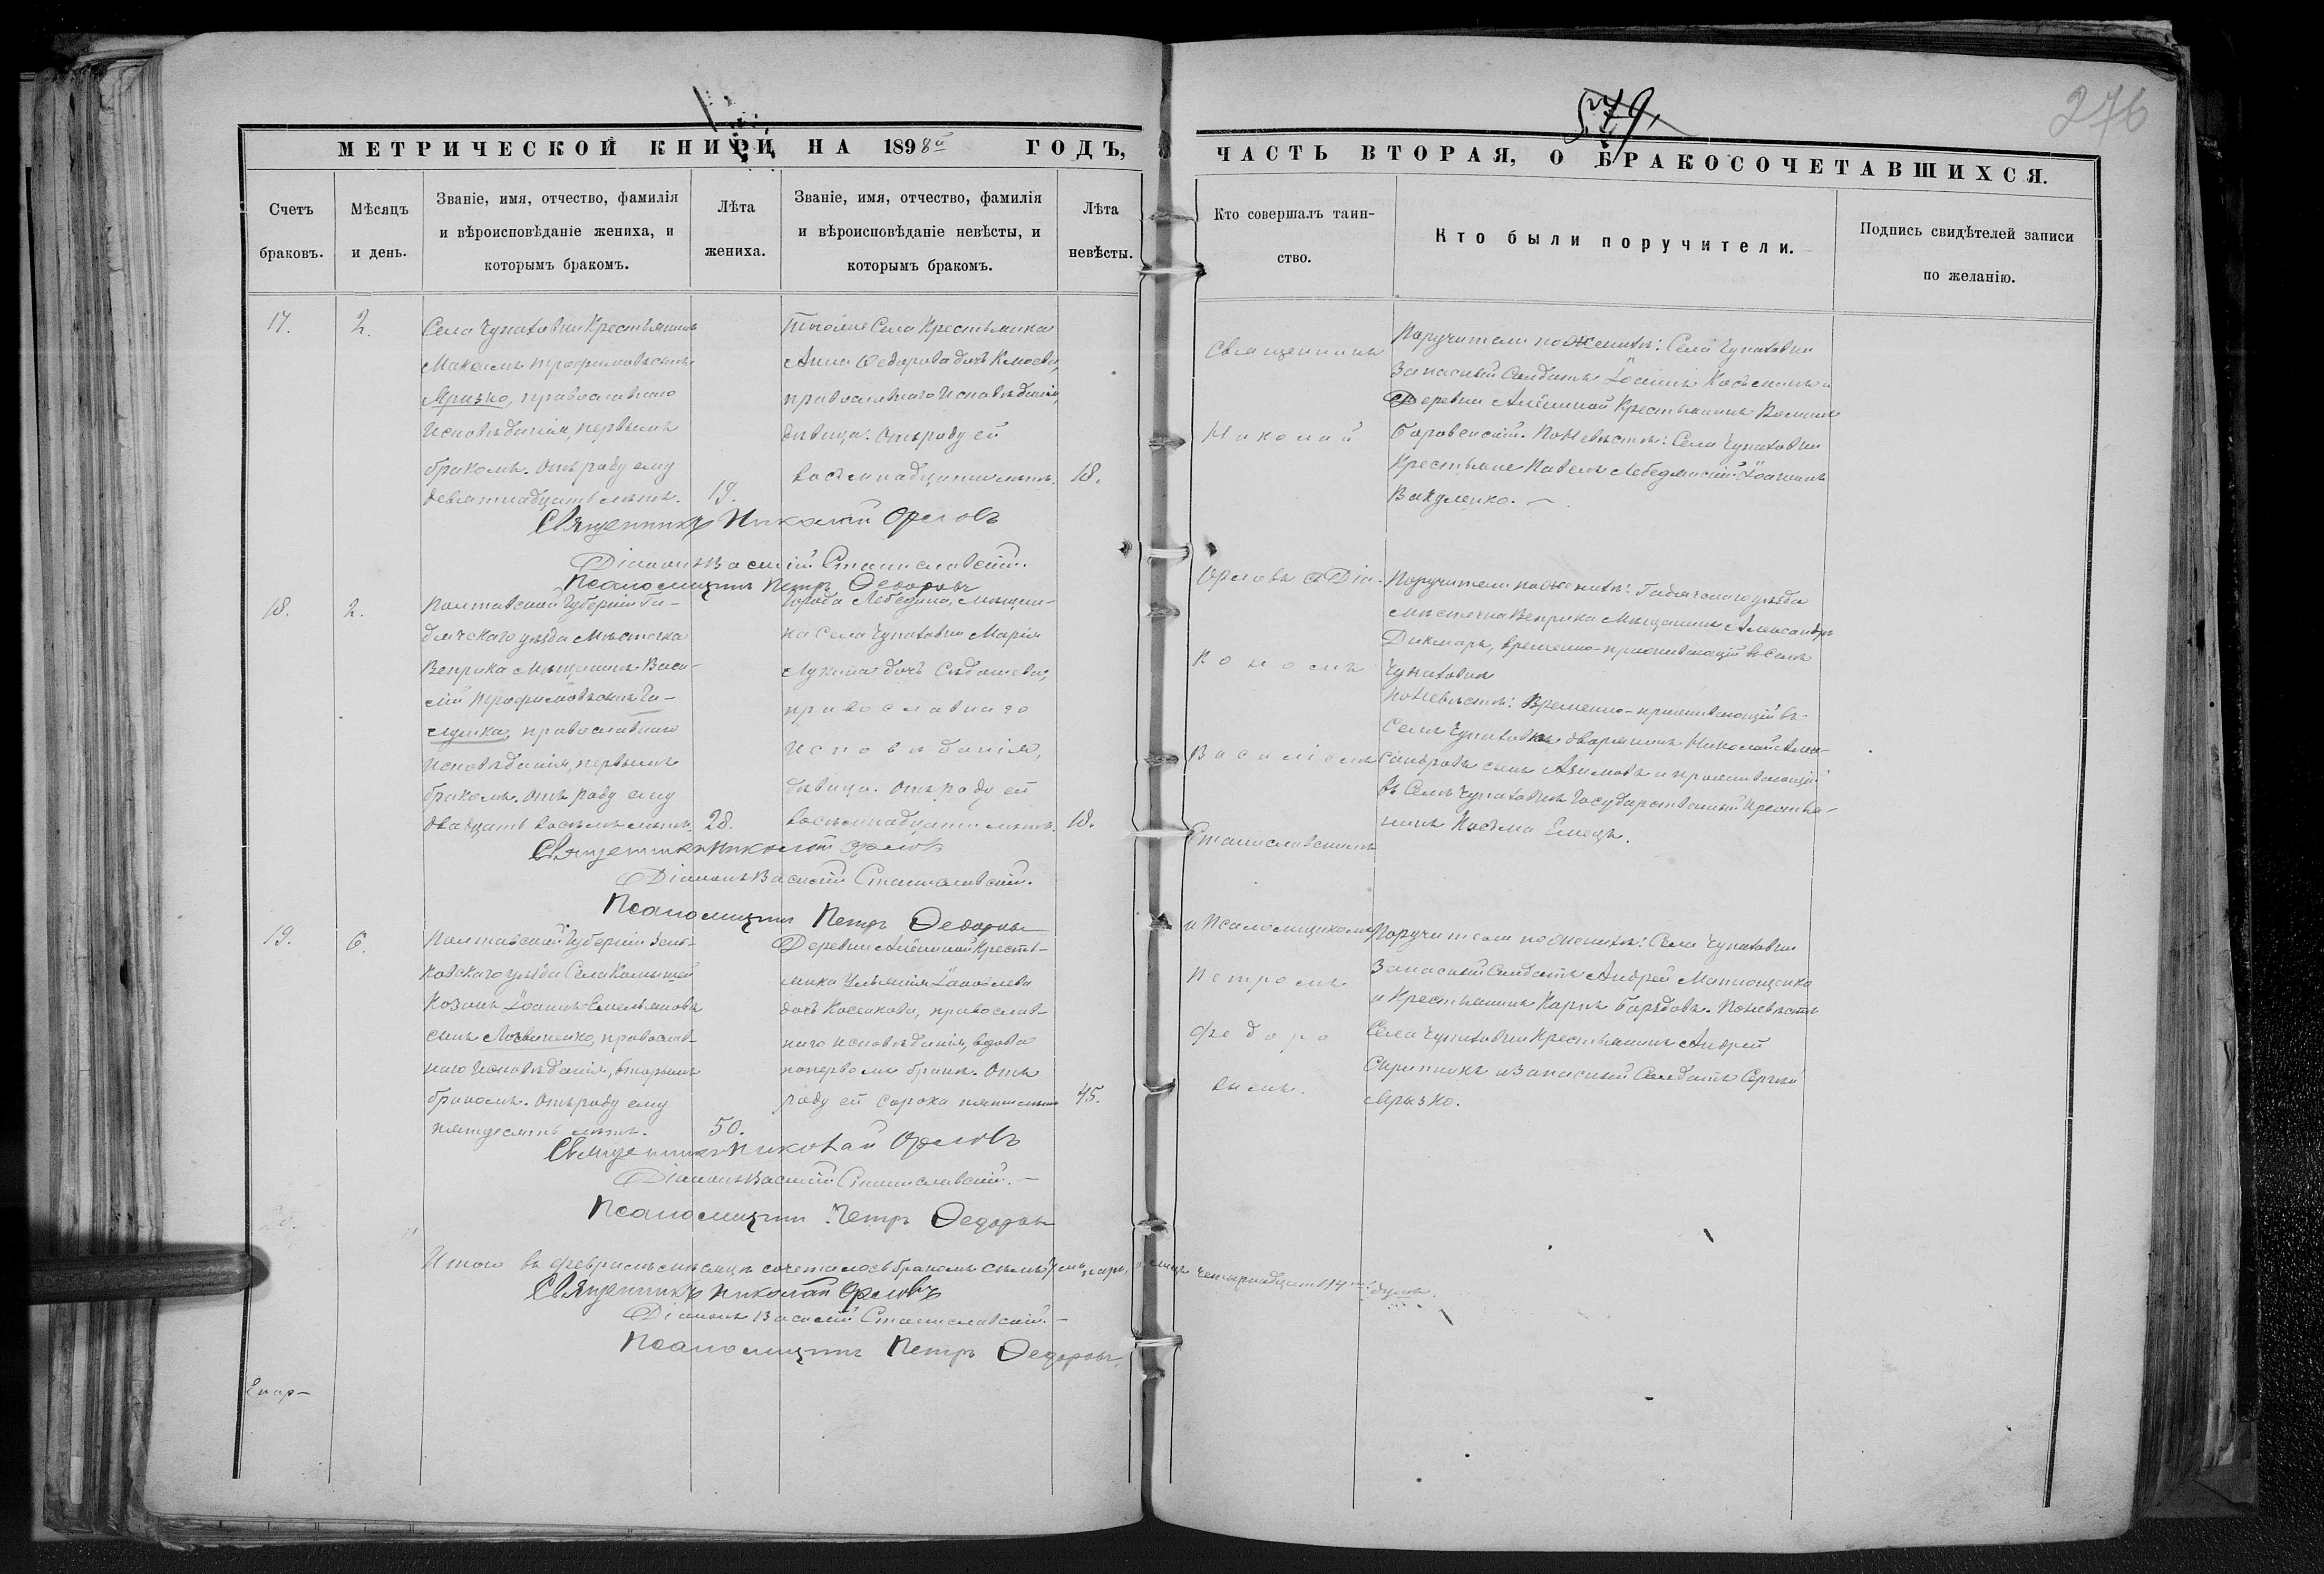 579.
276
МЕТРИЧЕСКОЙ КНИГИ НА 1898й ГОДЪ,
ЧАСТЬ ВТОРАЯ, О БРАКОСОЧЕТАВШИХСЯ.
Счетъ браковъ.
Мѣсяцъ и день.
Званіе, имя, отчество, фамилія
и вѣроисповѣданіе жениха, и
которымъ бракомъ.
Лѣта жениха.
Званіе, имя, отчество, фамилія
и вѣроисповѣданіе невѣсты, и
которымъ бракомъ.
Лѣта невѣсты.
Кто совершалъ таин-
ство.
Кто были поручители.
Подпись свидѣтелей записи
по желанію.
17.
2.
Села Чупаховки Крестьянинъ
Максимъ Трофимовъ сынъ
православнаго
исповѣданія, первымъ
бракомъ. Отъ роду ему
девятнадцать лѣтъ.
19.
Тогоже Села Крестьянка
Анна Ѳедорова дочь
православнаго исповѣданія,
дѣвица. Отъ роду ей
восемнадцать лѣтъ.
18.
Священникъ Николай Орловъ
Діаконъ Василій Станиславскій.
Псаломщикъ Петръ Ѳедоровъ
Поручители по женихѣ: Села Чупаховки
Запасный Солдатъ Іоаннъ и
Деревни Алёшиной Крестьянинъ
Боровенскій. По Невѣстѣ: Села Чупаховки
Крестьяне Павелъ Лебединскій Іоаннъ
Вакуленко.
18.
2.
Полтавской Губерніи Га-
дячскаго уѣзда Мѣстечка
Веприка Мѣщанинъ Васи-
лій Трофимовъ сынъ Га-
лушка, православнаго
исповѣданія, первымъ
бракомъ. Отъ роду ему
двадцать восемь лѣтъ.
28.
Города Лебедина, Мѣщан-
ка Села Чупаховки Марія
Лукина дочь
православнаго
исповѣданія,
дѣвица. Отъ роду ей
восемнадцать лѣтъ.
18.
Священникъ Николай Орловъ
Діаконъ Василій Станиславскій.
Псаломщикъ Петръ Ѳедоровъ
Поручители по женихѣ: Гадячскаго уѣзда
мѣстечка Веприка Мѣщанинъ Александръ
Дикмаръ, временно-проживающій въ Селѣ
Чупаховкѣ
По Невѣстѣ: Временно-проживающій въ
Селѣ Чупаховкѣ дворянинъ Николай Алек-
сандровъ сынъ Азимовъ и проживающій
въ Селѣ Чупаховкѣ Государственный Крестья-
нинъ Косьма Емецъ.
19.
6.
Полтавской Губерніи Зень-
ковскаго уѣзда Села Камышей
Козакъ Іоаннъ Емельяновъ
сынъ Логвиненко, православ-
наго исповѣданія, вторымъ
бракомъ. Отъ роду ему
пятьдесятъ лѣтъ.
50.
Деревни Алёшиной Кресть-
янка Іаковлева
дочь Косякова, православ-
наго исповѣданія, вдова
по первомъ бракѣ. Отъ
роду ей сорокъ пять лѣтъ
45.
Священникъ Николай Орловъ
Діаконъ Василій Станиславскій.
Псаломщикъ Петръ Ѳедоровъ
Поручители по Женихѣ: Села Чупаховки
Запасный Солдатъ Андрей Матющенко
и Крестьянинъ Карпъ. По невѣстѣ
Села Чупаховки Крестьянинъ Андрей
Скрипникъ и Запасный Солдатъ Сергѣй
Священникъ
Николай
Орловъ съ Діа-
кономъ
Василіемъ
Станиславскимъ
и Псаломщикомъ
Петромъ
Федоро
вымъ.
Итого въ февралѣ мѣсяцѣ сочеталось бракомъ семь 7мь паръ, а лицъ четырнадцать 14ть душъ.
Священникъ Николай Орловъ
Діаконъ Василій Станиславскій.
Псаломщикъ Петръ Ѳедоровъ.